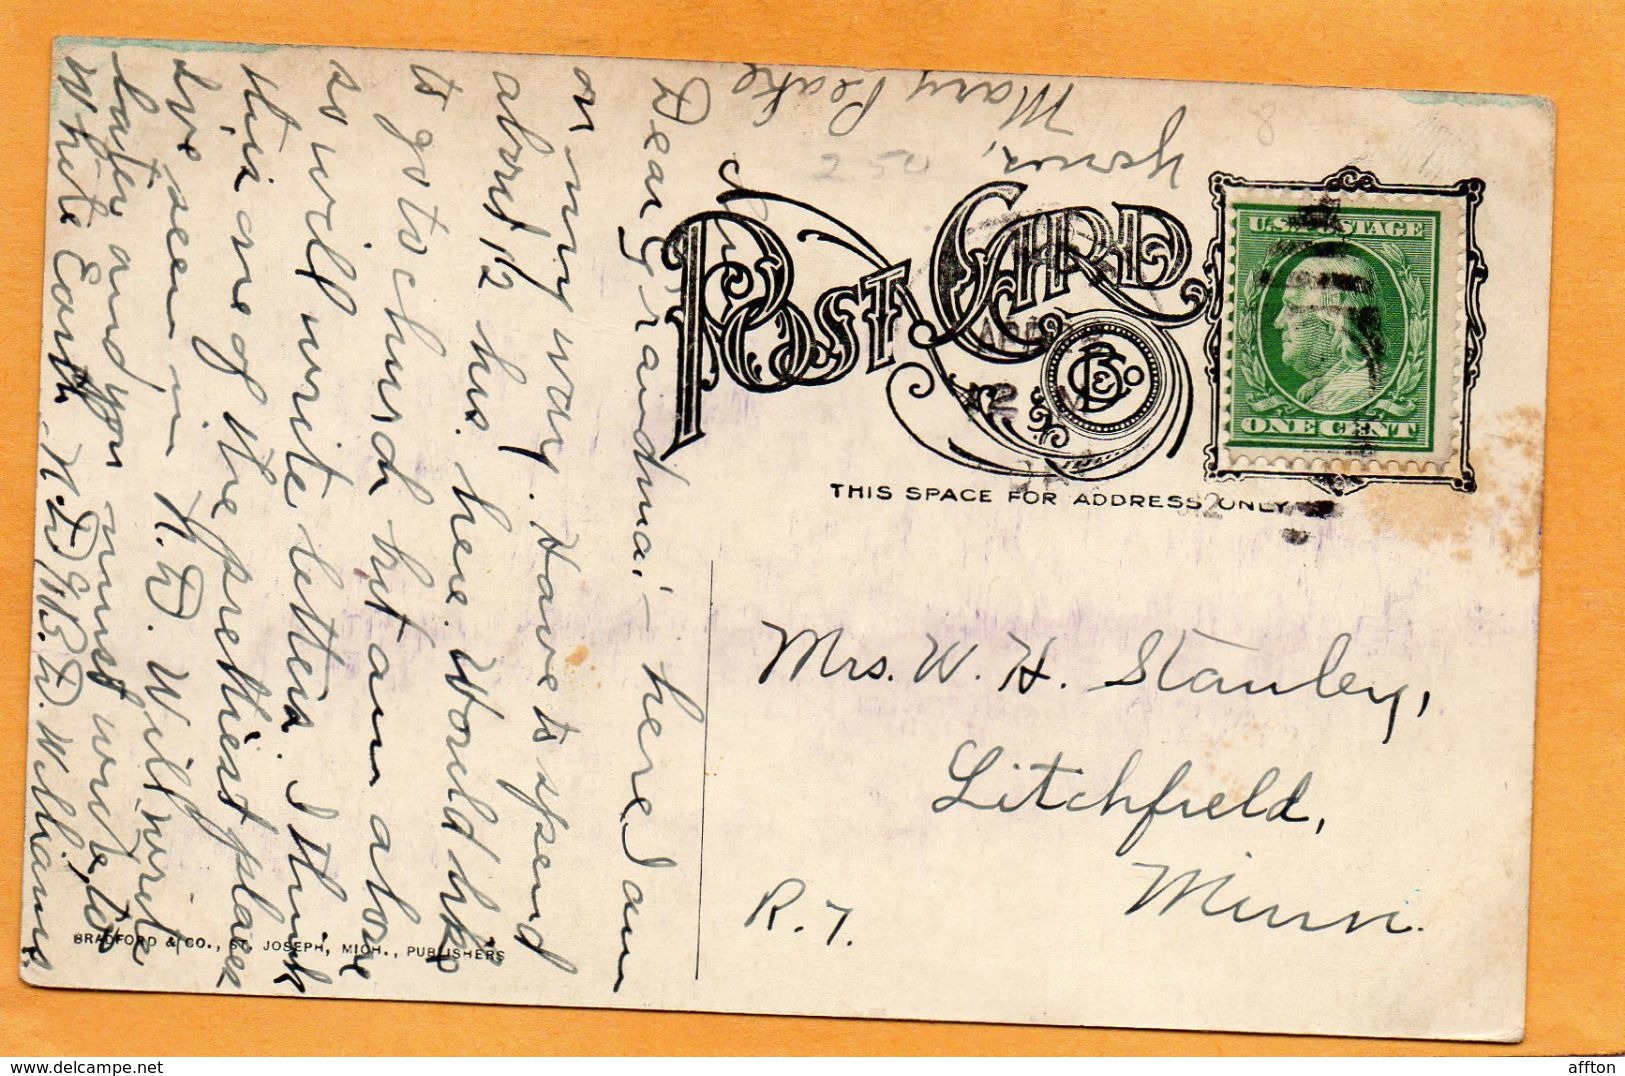 Dear Grandma:- here I am
on my way. Have to spend
about 12 hrs. here. Would like
to go to church but am alone
so will write letters. I think
this one of the prettiest places
I've seen in N.D. Will write
later and you must write, to
White Earth, N.D., % B.D. Williams
Yours,
Mary Peake
250
8
POST CARD
B & Co
THIS SPACE FOR ADDRESS ONLY
U.S. POSTAGE
ONE CENT
Mrs. W. H. Stanley,
Litchfield,
Minn.
R. 7.
BRADFORD & CO., ST. JOSEPH, MICH., PUBLISHERS
www.delcampe.net
affton